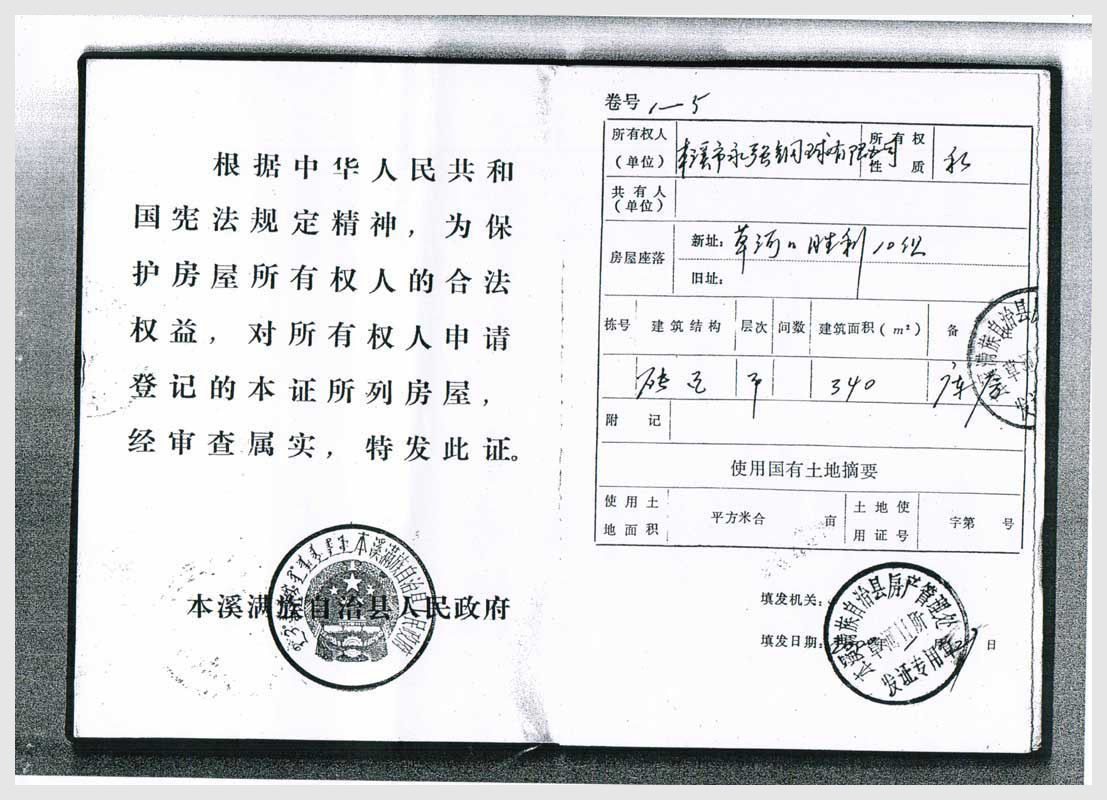 根据中华人民共和
国宪法规定精神，为保
护房屋所有权人的合法
权益，对所有权人申请
登记的本证所列房屋，
经审查属实，特发此证。
本溪满族自治县人民政府
本溪满族自治县人民政府
卷号 1—5
所有权人（单位） 本溪市永强钢球有限公司 所有权性质 私
共有人（单位）
房屋座落 新址：草河口胜利10组
旧址：
栋号 建筑结构 层次 间数 建筑面积（m²） 备
砖瓦 平 340 库房
附记
使用国有土地摘要
使用土地面积 平方米合 亩 土地使用证号 字第 号
填发机关：
填发日期： 日
满族自治县房产管理
发证专用章
满族自治县